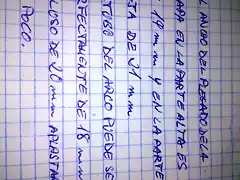 L ANCHO DEL PLEGADO DE LA
ADA EN LA PARTE ALTA ES
19 mm Y EN LA PARTE
TA DE 21 mm
DEL ARCO PUEDE SE
RECTAMENTE DE 18 mm
LOSO DE 20 mm APLASTAN
POCO.